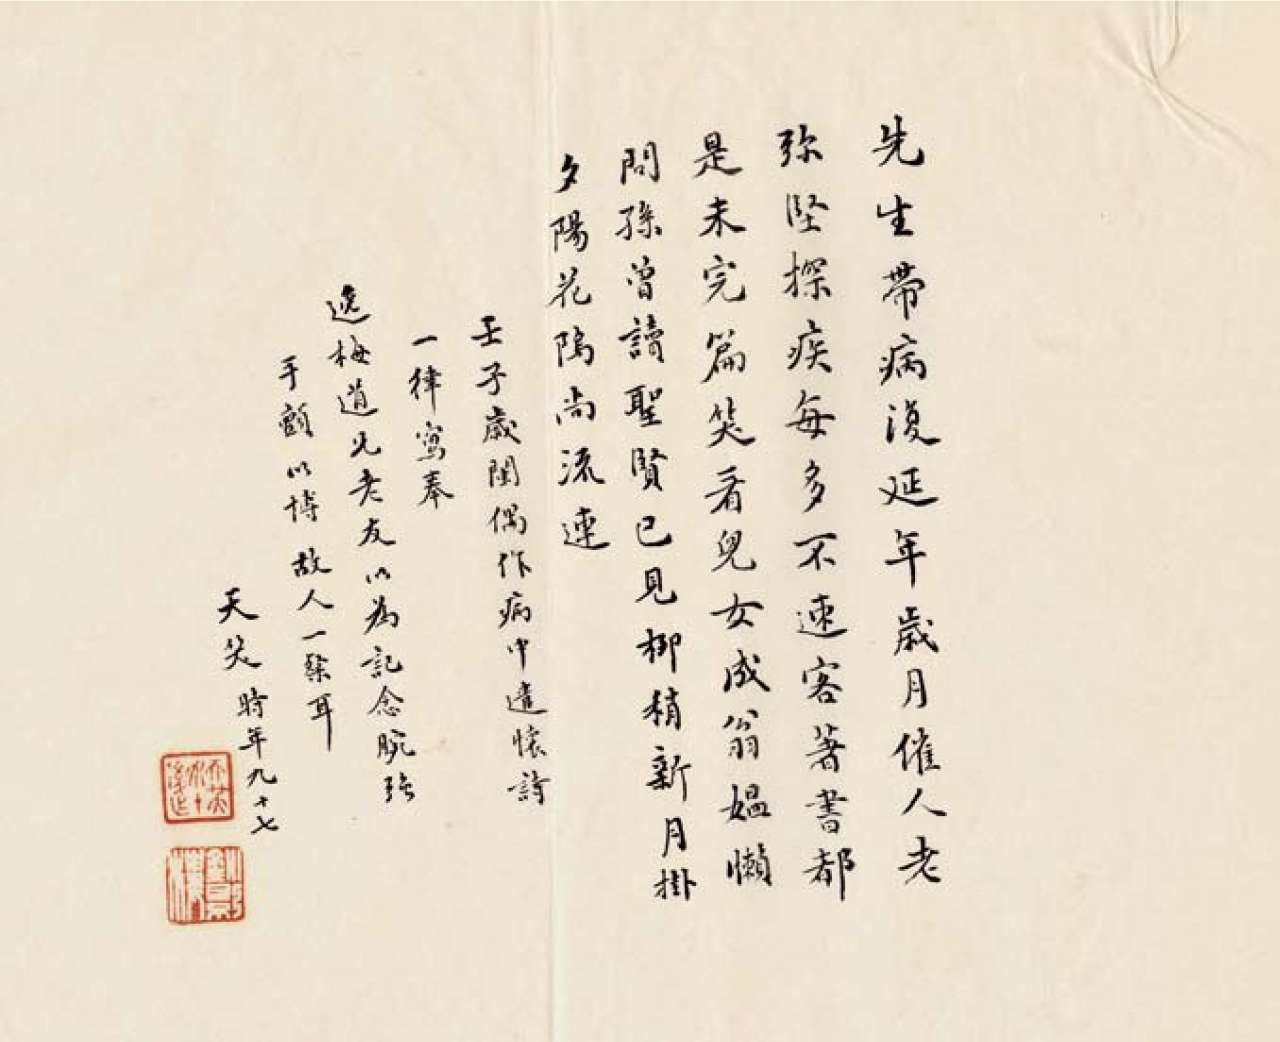 先生帶病復延年歲月催人老
弥堅探疾每多不速客著書都
是未完篇笑看兒女成翁媼懶
問孫曾讀聖賢已見柳梢新月掛
夕陽花隖尚流連
壬子歲閏偶作病中遣懷詩
一律寫奉
逸梅道兄老友以為記念腕弱
手顫以博故人一粲耳
天笑時年九十七